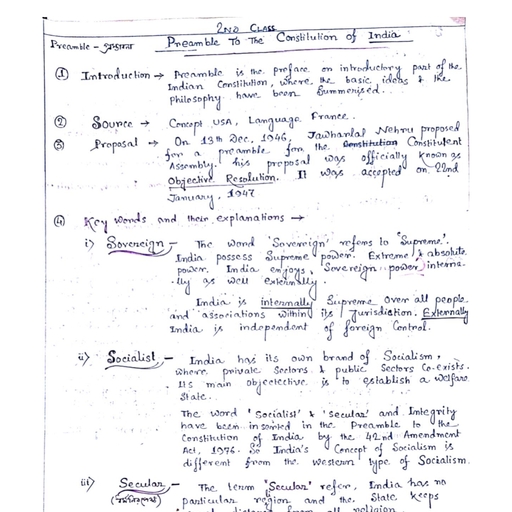 2ND CLASS
Preamble - প্রস্তাবনা Preamble To The Constitution of India
① Introduction → Preamble is the preface or introductory part of the
Indian Constitution, where the basic ideas & the
Philosophy have been Summerised.
② Source → Concept USA, Language France.
③ Proposal → On 13th Dec, 1946, Jawharlal Nehru proposed
for a preamble for the Constitution Constituent
Assembly. his proposal was officially known as
Objective Resolution. It was accepted on 22nd
January, 1947
④ Key words and their explanations →
i) Sovereign - The word 'Sovereign' refers to 'Supreme'.
India possess Supreme power. Extreme & absolute
power. India enjoys, Sovereign power interna-
lly as well Externally.
India is internally Supreme over all people
and associations within its Jurisdiction. Externally
India is independent of foreign Control.
ii) Socialist - India has its own brand of Socialism,
where private Sectors & public Sectors Co-exists.
Its main objectective is to establish a Welfare
State.
The word 'Socialist' & 'Secular' and Integrity
have been inserted in the Preamble to the
Constitution of India by the 42nd Amendment
Act, 1976. So India's Concept of Socialism is
different from the Western type of Socialism.
iii) Secular - The term 'Secular' refer, India has no
particular region and the State keeps
distance from all religion